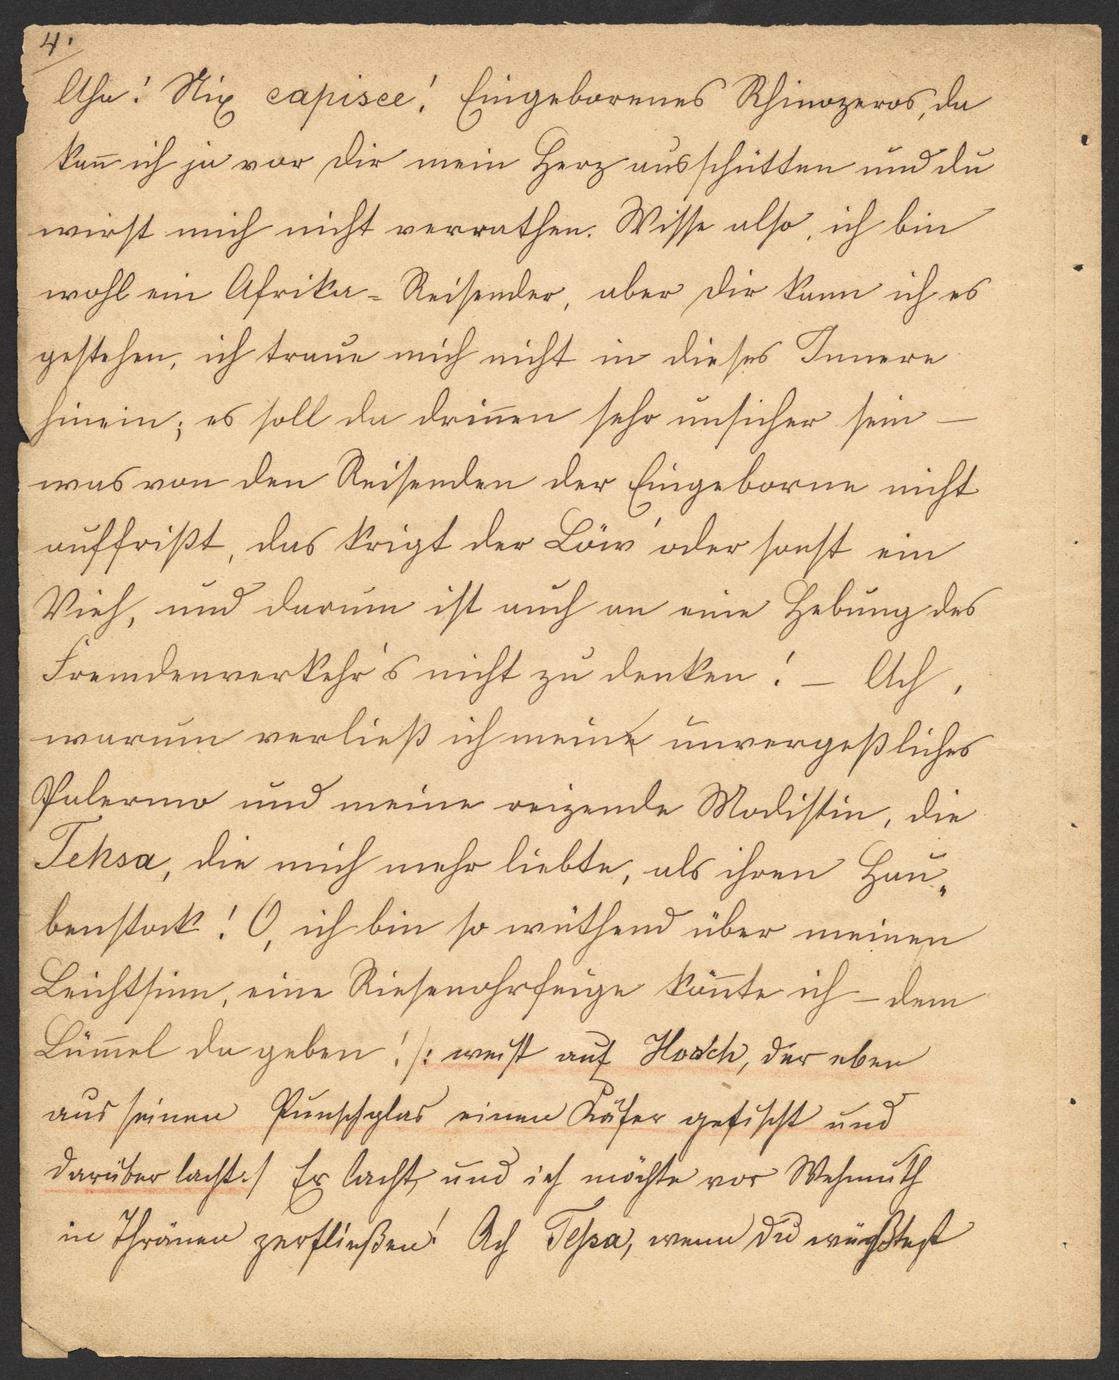 4.
Aha! Nix capisce! Eingeborenes Rhinozeros, da
kan̄ ich ja vor dir mein Herz ausschütten und du
wirst mich nicht verrathen. Wisse also, ich bin
wohl ein Afrika-Reisender, aber dir kann ich es
gestehen, ich traue mich nicht in dieses Innere
hinein; es soll da drin̄en sehr unsicher sein —
was von den Reisenden der Eingeborne nicht
auffrißt, das krigt der Löw' oder sonst ein
Vieh, und darum ist auch an eine Hebung des
Fremdenverkehr's nicht zu denken! — Ach,
warum verließ ich mein unvergeßliches
Palermo und meine reizende Modistin, die
Tehsa, die mich mehr liebte, als ihren Hau„
benstock! O, ich bin so wüthend über meinen
Leichtsinn, eine Riesenohrfeige kön̄te ich — dem
Lüm̄el da geben! /: weist auf Hosch, der eben
aus seinen Punschglas einen Käfer gefischt und
darüber lacht :/ Er lacht, und ich möchte vor Wehmuth
in Thränen zerfließen! Ach Tehsa, wenn du wüßtest